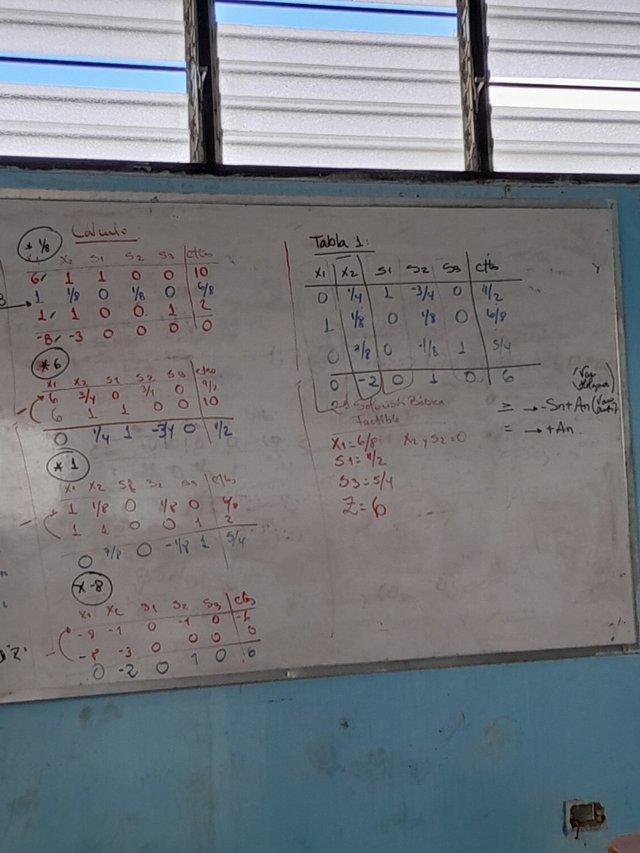 * 1/8 Calculo
x1 x2 s1 s2 s3 ctes
6 1 1 0 0 10
1 1/8 0 1/8 0 6/8
1 1 0 0 1 2
-8 -3 0 0 0 0
* 6
x1 x2 s1 s2 s3 ctes
6 3/4 0 3/4 0 9/2
6 1 1 0 0 10
0 1/4 1 -3/4 0 11/2
* 1
x1 x2 s1 s2 s3 ctes
1 1/8 0 1/8 0 6/8
1 1 0 0 1 2
0 7/8 0 -1/8 1 5/4
x -8
x1 x2 s1 s2 s3 ctes
-8 -1 0 -1 0 -6
-8 -3 0 0 0 0
0 -2 0 1 0 6
Tabla 1:
x1 x2 s1 s2 s3 ctes
0 1/4 1 -3/4 0 11/2
1 1/8 0 1/8 0 6/8
0 7/8 0 -1/8 1 5/4
0 -2 0 1 0 6
Solución Básica
Factible
x1 = 6/8 x2 y s2 = 0
s1 = 11/2
s3 = 5/4
Z = 6
≥ → -Sn + An
= → + An